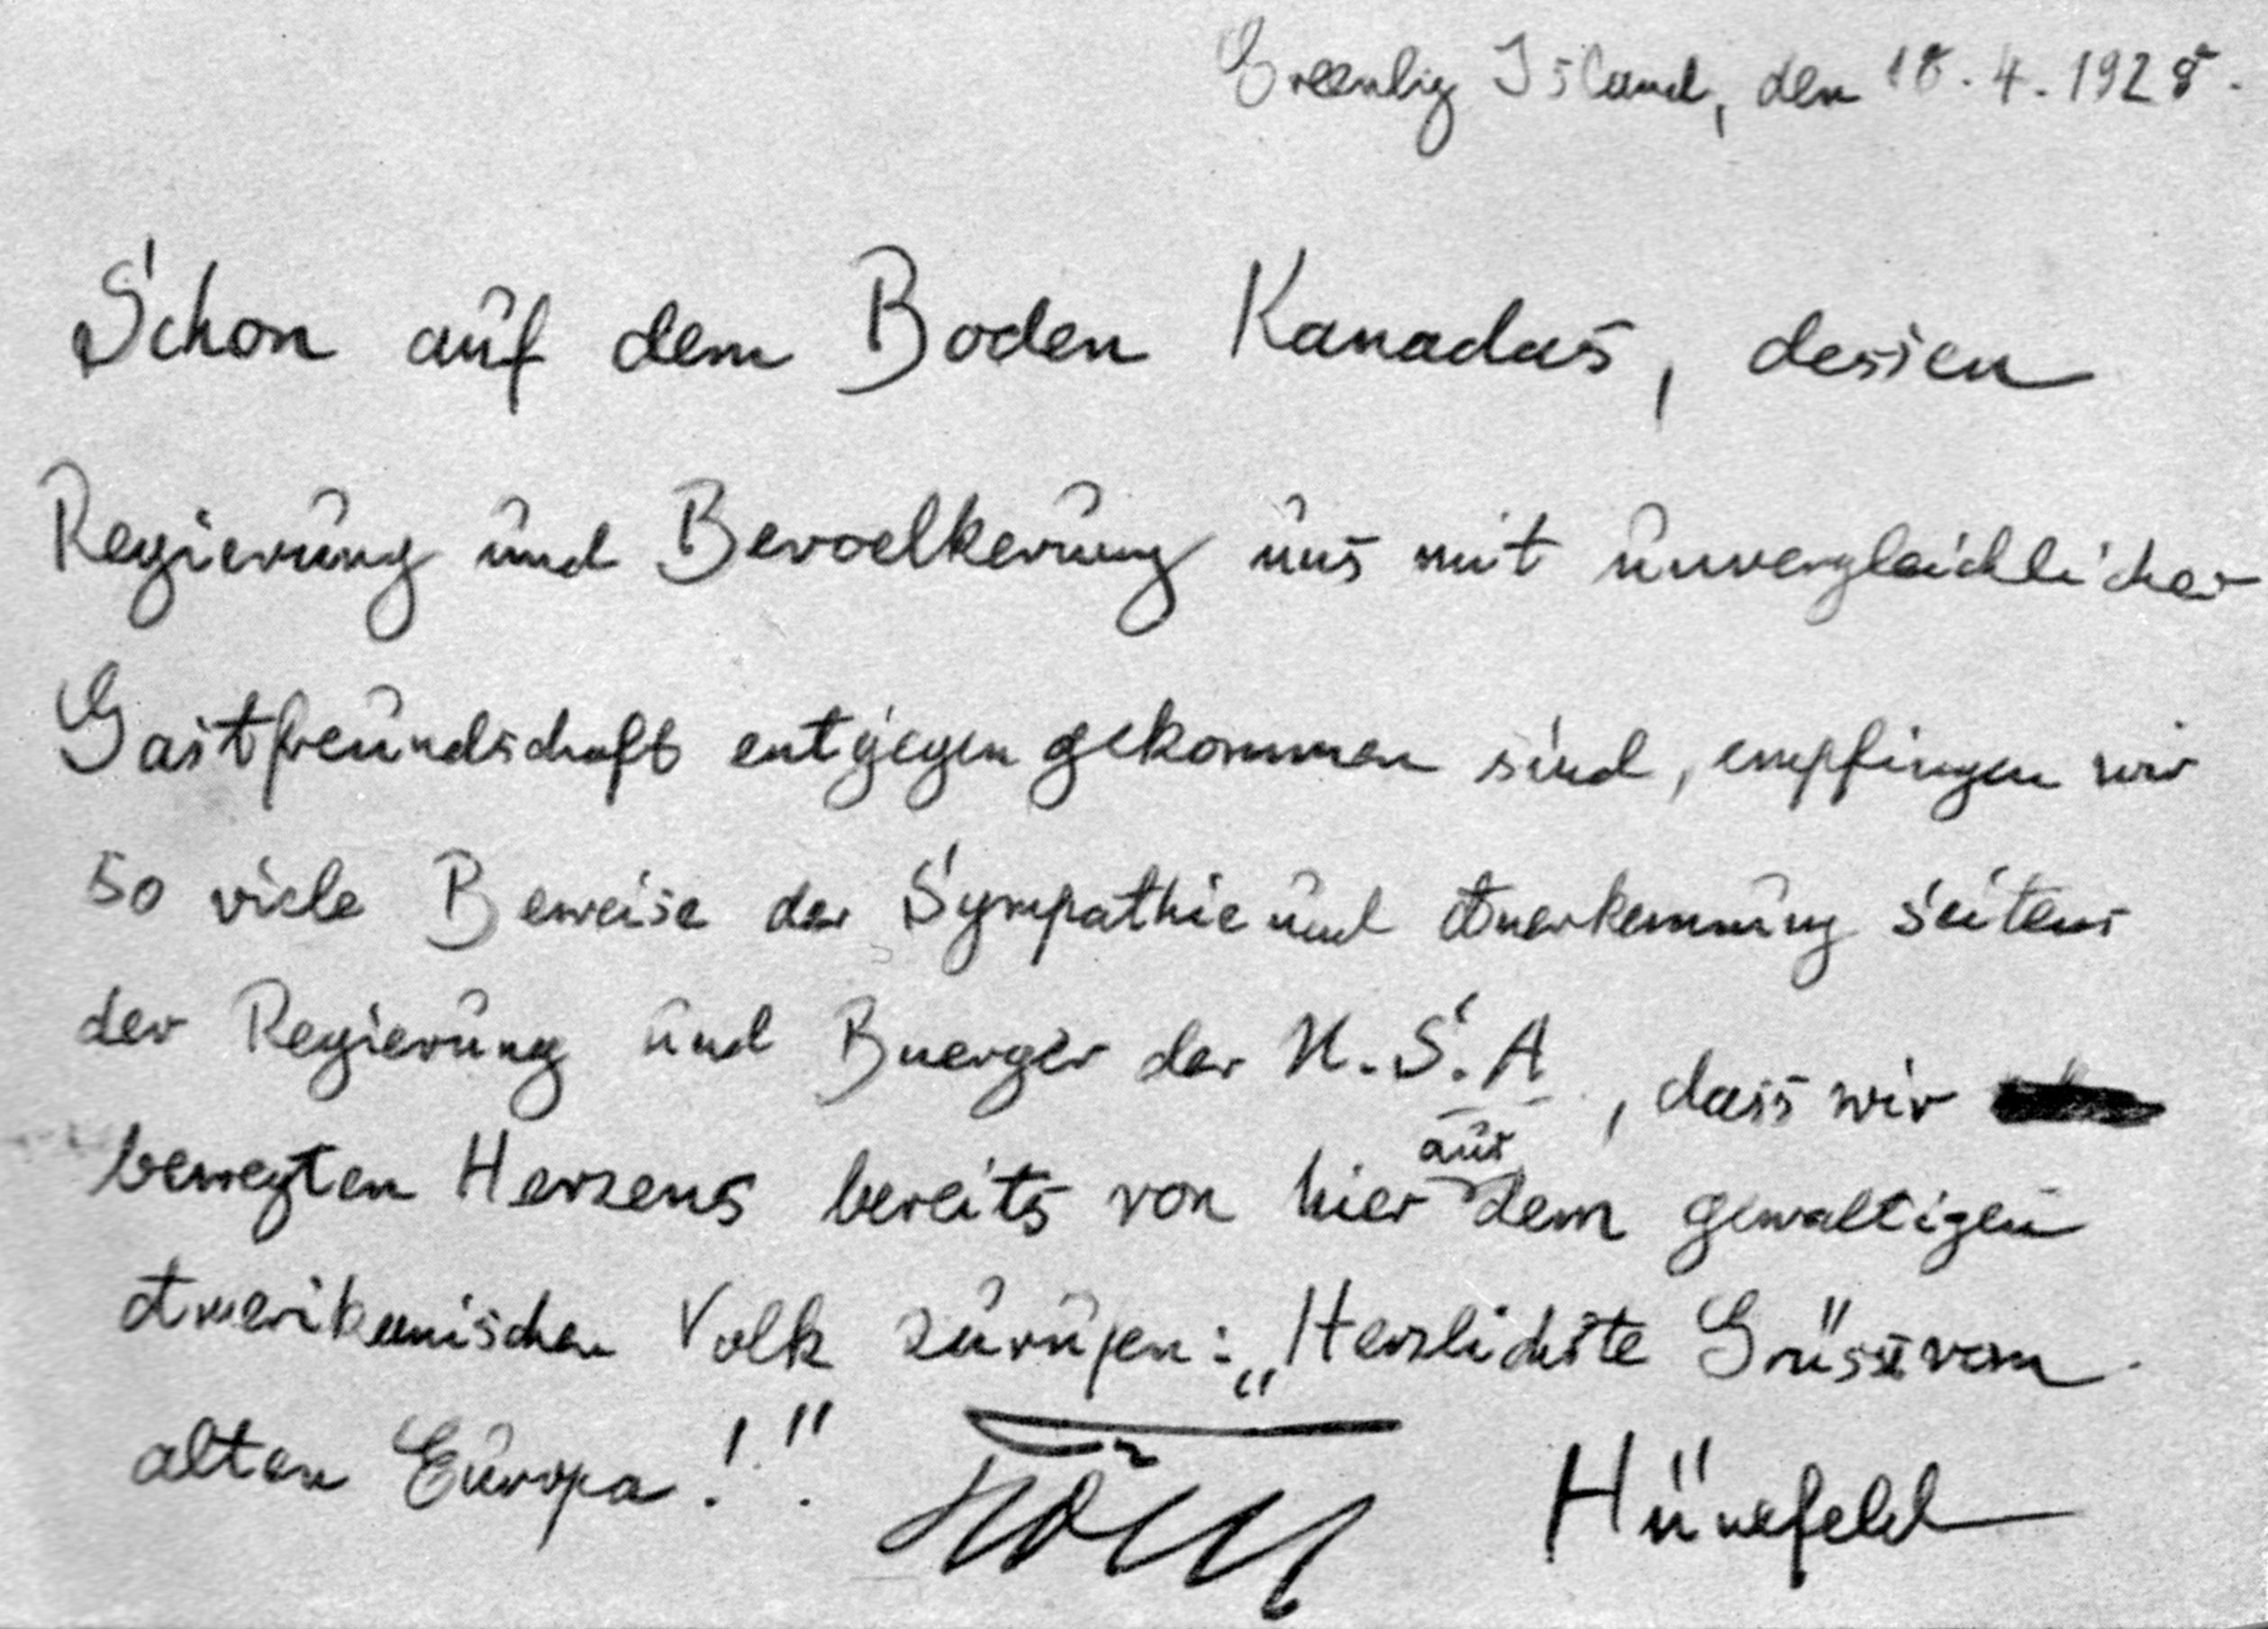 Greenly Island, den 18.4.1928.
Schon auf dem Boden Kanadas, dessen
Regierung und Bevoelkerung uns mit unvergleichlicher
Gastfreundschaft entgegen gekommen sind, empfingen wir
so viele Beweise der Sympathie und Anerkennung seitens
der Regierung und Buerger der U.S.A, dass wir
aus
bewegten Herzens bereits von hier dem gewaltigen
Amerikanischen Volk zurufen: „Herzlichste Grüsse vom
alten Europa!"
Köhl Hünefeld